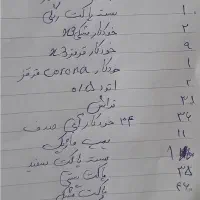 بسته پاکت رنگی ۱۰
خودکار مشکی x3 ۲
خودکار قرمز x3 ۹
خودکار corona قرمز ۱
اتود ۰/۵ ۲
تراش ۲۶
۳۴ خودکار آبی صدف ۳۶
چسب ماتیکی ۱۱
بسته پاکت سفید ۱
پاکت پستی ۳۵
پاکت مشکی ۴۶۰